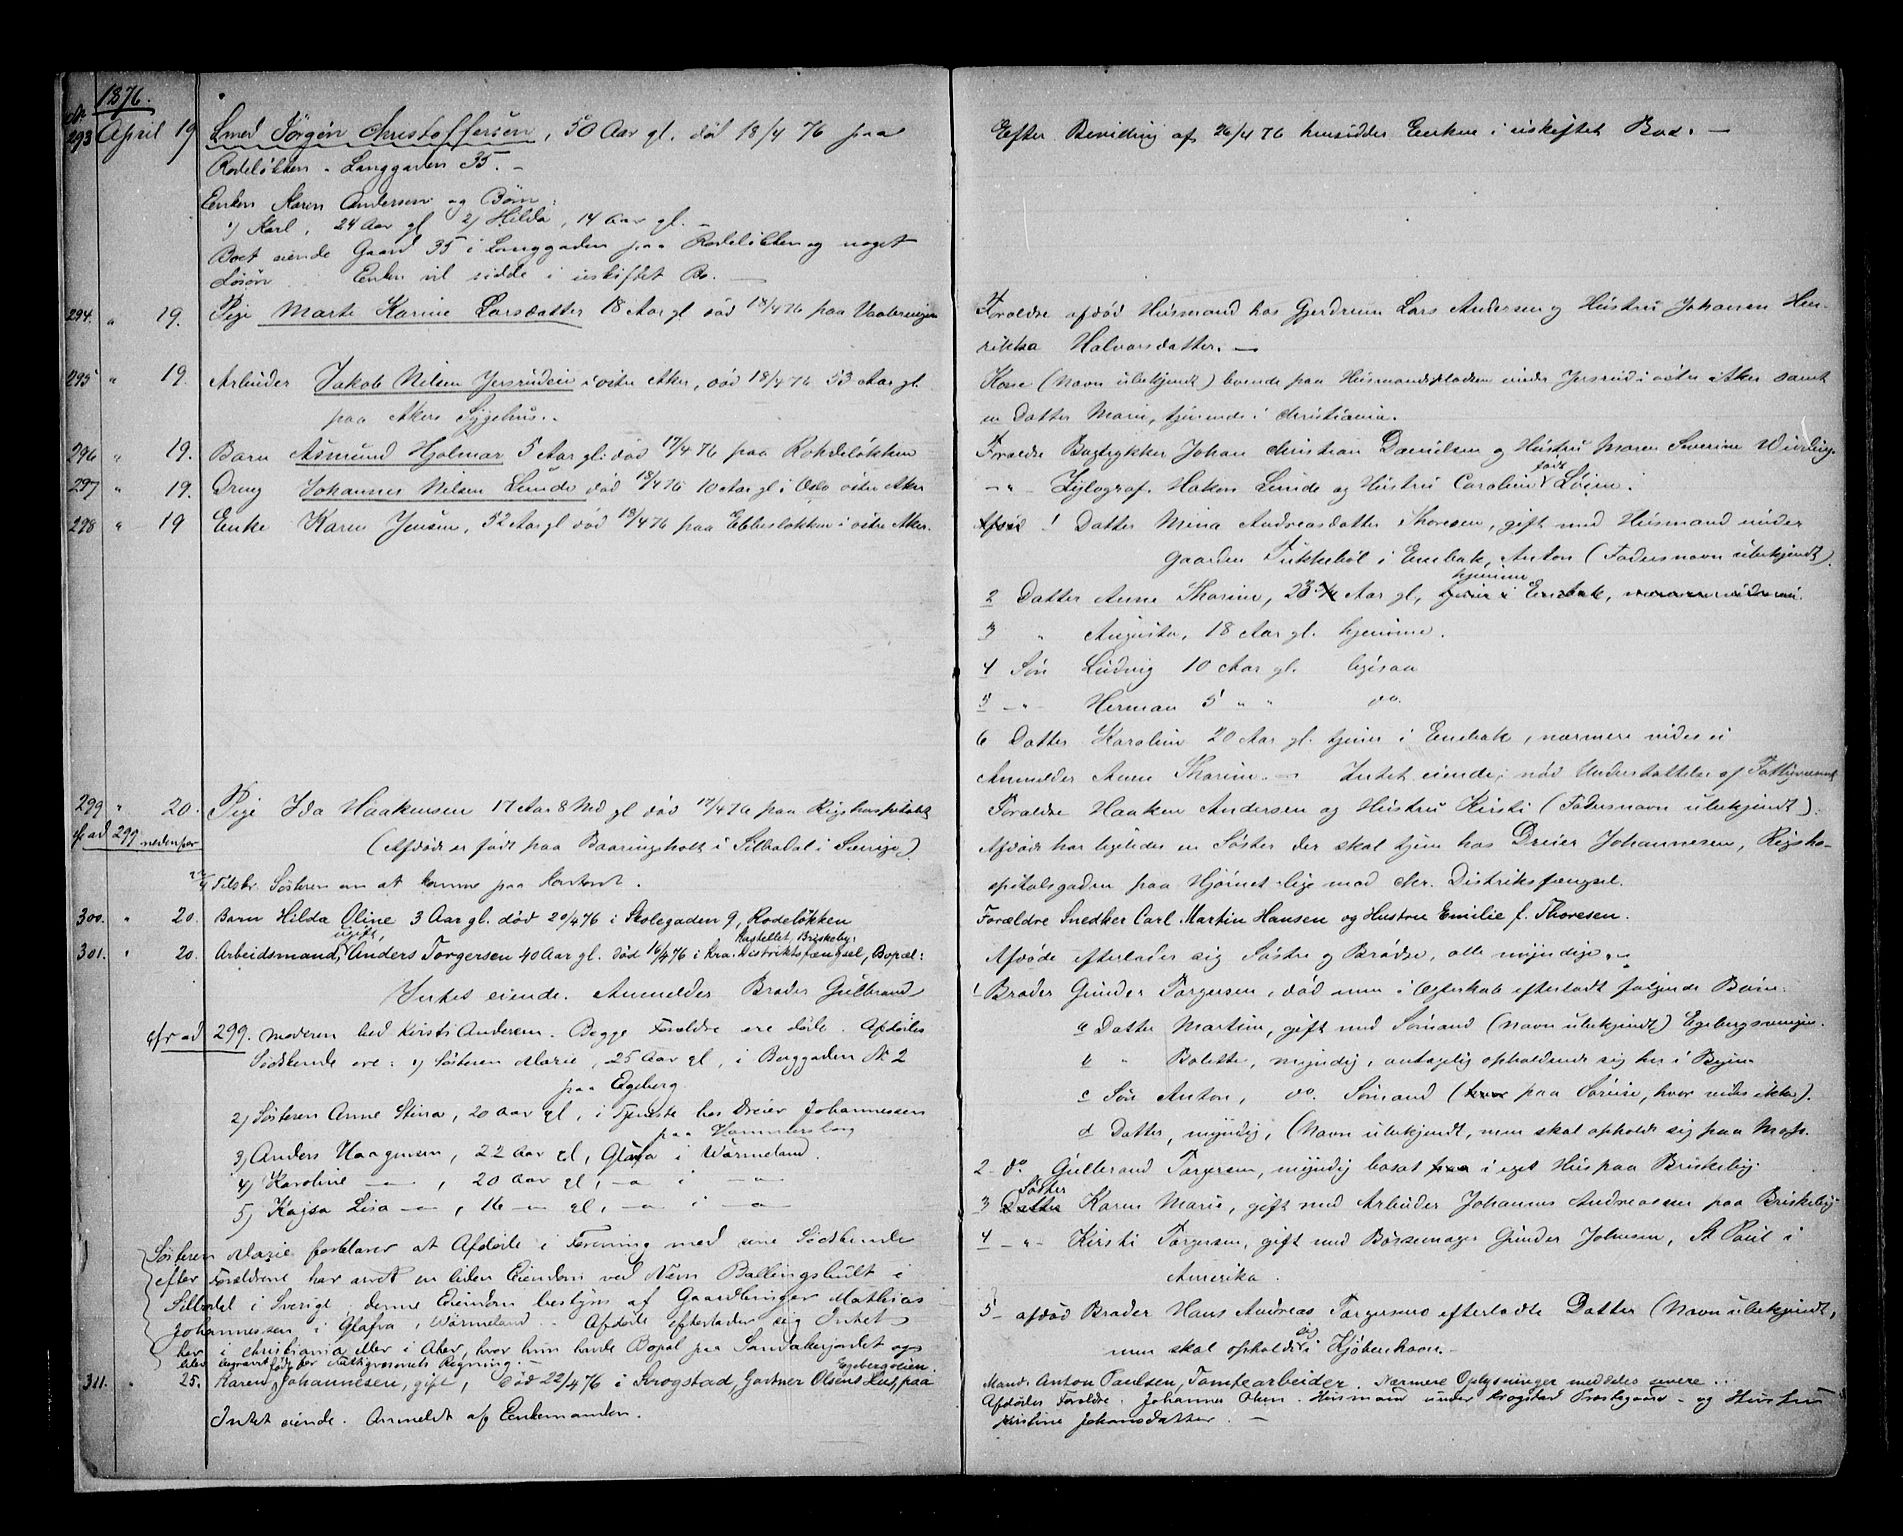 1876.
No
293 April 19 Smed Jörgen Christoffersen, 50 Aar gl. död 18/4 76 paa
Rodelökken - Langgaden 35. -
Enken Karen Andersen og Börn:
1) Karl, 24 Aar gl 2) Hilda, 14 Aar gl. -
Boet eiende Gaard 35 i Langgaden paa Rodelökken og noget
Lösön. Enken vil sidde i uskiftet Bo. —
294. " 19. Pige Marte Karine Larsdatter 18 Aar gl död 18/4 76 paa Vaalerengen
295 " 19. Arbeider Jakob Nilsen Jersrudeie i östre Aker, död 18/4 76 53 Aar gl.
paa Akers Sygehus..
296 " 19. Barn Asmund Hjalmar 5 Aar gl: död 17/4 76 paa Rohdelökken
297 " 19. Dreng Johannes Nilsen Lunde död 18/4 76 10 Aar gl i Oslo östre Aker
298 " 19 Enke Karen Jensen, 52 Aar gl död 13/4 76 paa Ebbeslökken i östre Aker.
299 " 20. Pige Ida Haakensen 17 Aar 8 Md gl död 17/4 76 paa Rigshospitalet
cfr ad 299 nedenfor
(Afdöde er födt paa Baaringsholt i Silbadal i Sverige)
Tilsbr. Sösteren om at komme paa Kontoret.
300. " 20. Barn Hilda Oline 3 Aar gl. död 20/4 76 i Skolegaden 9, Rodelökken
301. " 20. Arbeidsmand, ugift, Anders Torgersen 40 Aar gl. död 16/4 76 i Kra. Distriktsfængsel, Bopæl: Kastellet, Briskeby.
Intet eiende. Anmelder Broder Gulbrand
cfr ad 299. Moderen hed Kirsti Andersen. Begge Forældre ere döde. Afdödes
Södskende ere: 1) Sösteren Marie, 25 Aar gl, i Berggaden No 2
paa Egeberg
2) Sösteren Anne Stina, 20 Aar gl, i Tjeneste hos Dreier Johannessen
paa Hammersborg
3) Anders Haagensen, 22 Aar gl, Glafva i Wärmeland.
4) Karoline — , 20 Aar gl, — i —
5) Kajsa Lisa — , 16 — gl, — i —
Sösteren Marie forklarer at Afdöde i Forening med sine Södskende
efter Forældrene har arvet en liden Eiendom ved Navn Ballingshult i
Silbodal i Sverige, denne Eiendom bestyres af Gaardbruger Mathias
Johannessen i Glafva, Wärmeland. - Afdöde efterlader sig Intet
her i Christiania eller i Aker, hvor hun havde Bopæl paa Sandakerjordet og
blev begravet for Fattigvæsenets Regning. -
311. " 25. Karen Johannesen, födt, gift, död 22/4 76 i Krogstad, Gartner Olsens Hus, paa Egebergveien.
Intet eiende. Anmeldt af Enkemanden.
Efter Bevilling af 26/4 76 hensidder Enken i uskiftet Bod. —
Forældre afdöd Husmand hos Gjerdrum Lars Andersen og Hustru Johanne Hen-
rikka Halvorsdatter. —
Kone (Navn ubekjendt) boende paa Husmandspladsen under Jersrud i östre Aker samt
en Datter Marie, tjenende i Christiania.
Forældre Bogtrykker Johan Christian Danielsen og Hustru Maren Severine Widding.
— " — Xylograf. Hakon Lunde og Hustru Caroline född Löken.
Afdöd 1 Datter Mina Andreasdatter Thoresen, gift med Husmand under
gaarden Fikkeböl i Enebak, Anton (Fadersnavn ubekjendt).
2 Datter Anne Thorine, 23 Aar gl, hjemme tjener i Enebak, nærmere vides ei.
3 " Augusta, 18 Aar gl. hjemme.
4 Sön Ludvig 10 Aar gl. ligesaa
5 - " - Herman 5 " " do.
6 Datter Karoline 20 Aar gl. tjener i Enebak, nærmere vides ei
Anmelder Anne Thorine. — Intet eiende, nöd Understöttelse af Fattigvæsenet
Forældre Haaken Andersen og Hustru Kirsti (Fadersnavn ubekjendt).
Afdöde har ligeledes en Söster der skal tjene hos Dreier Johannesen, Rigsho-
spitalsgaden paa Hjörnet lige mod Chr. Distriktsfængsel.
Forældre Snedker Carl Martin Hansen og Hustru Emilie f. Thoresen.
Afdöde efterlader sig Söstre og Brödre, alle myndige.
1 Broder Gunder Torgersen, död men i Ægteskab efterladt fölgende Börn:
a Datter Martine, gift med Sömand (Navn ubekjendt) Egebergveien.
b " Bolette, myndig, antagelig opholdende sig her i Byen
c Sön Anton, do. Sömand (paa Söreise, hvor vides ikke).
d Datter, myndig, (Navn ubekjendt, men skal opholde sig paa Moss.
2 - do Gulbrand Torgersen, myndig bosat i eget Hus paa Briskeby.
3 Söster Karen Marie, gift med Arbeider Johannes Andreassen paa Briskeby
4 - " - Kirsti Torgersen, gift med Börsemager Gunder Johnsen, St Paul i
Amerika.
5 - afdöd Broder Hans Andreas Torgersens efterladte Datter (Navn ubekjendt,
men skal opholde sig i Kjöbenhavn. -
Mand: Anton Paulsen, Tomtearbeider. Nærmere Oplysninger meddeles senere...
Afdödes Forældre: Johannes Olsen. Husmand under Krogstad Prestegaard - og Hustru
Kristine Johansdatter. —